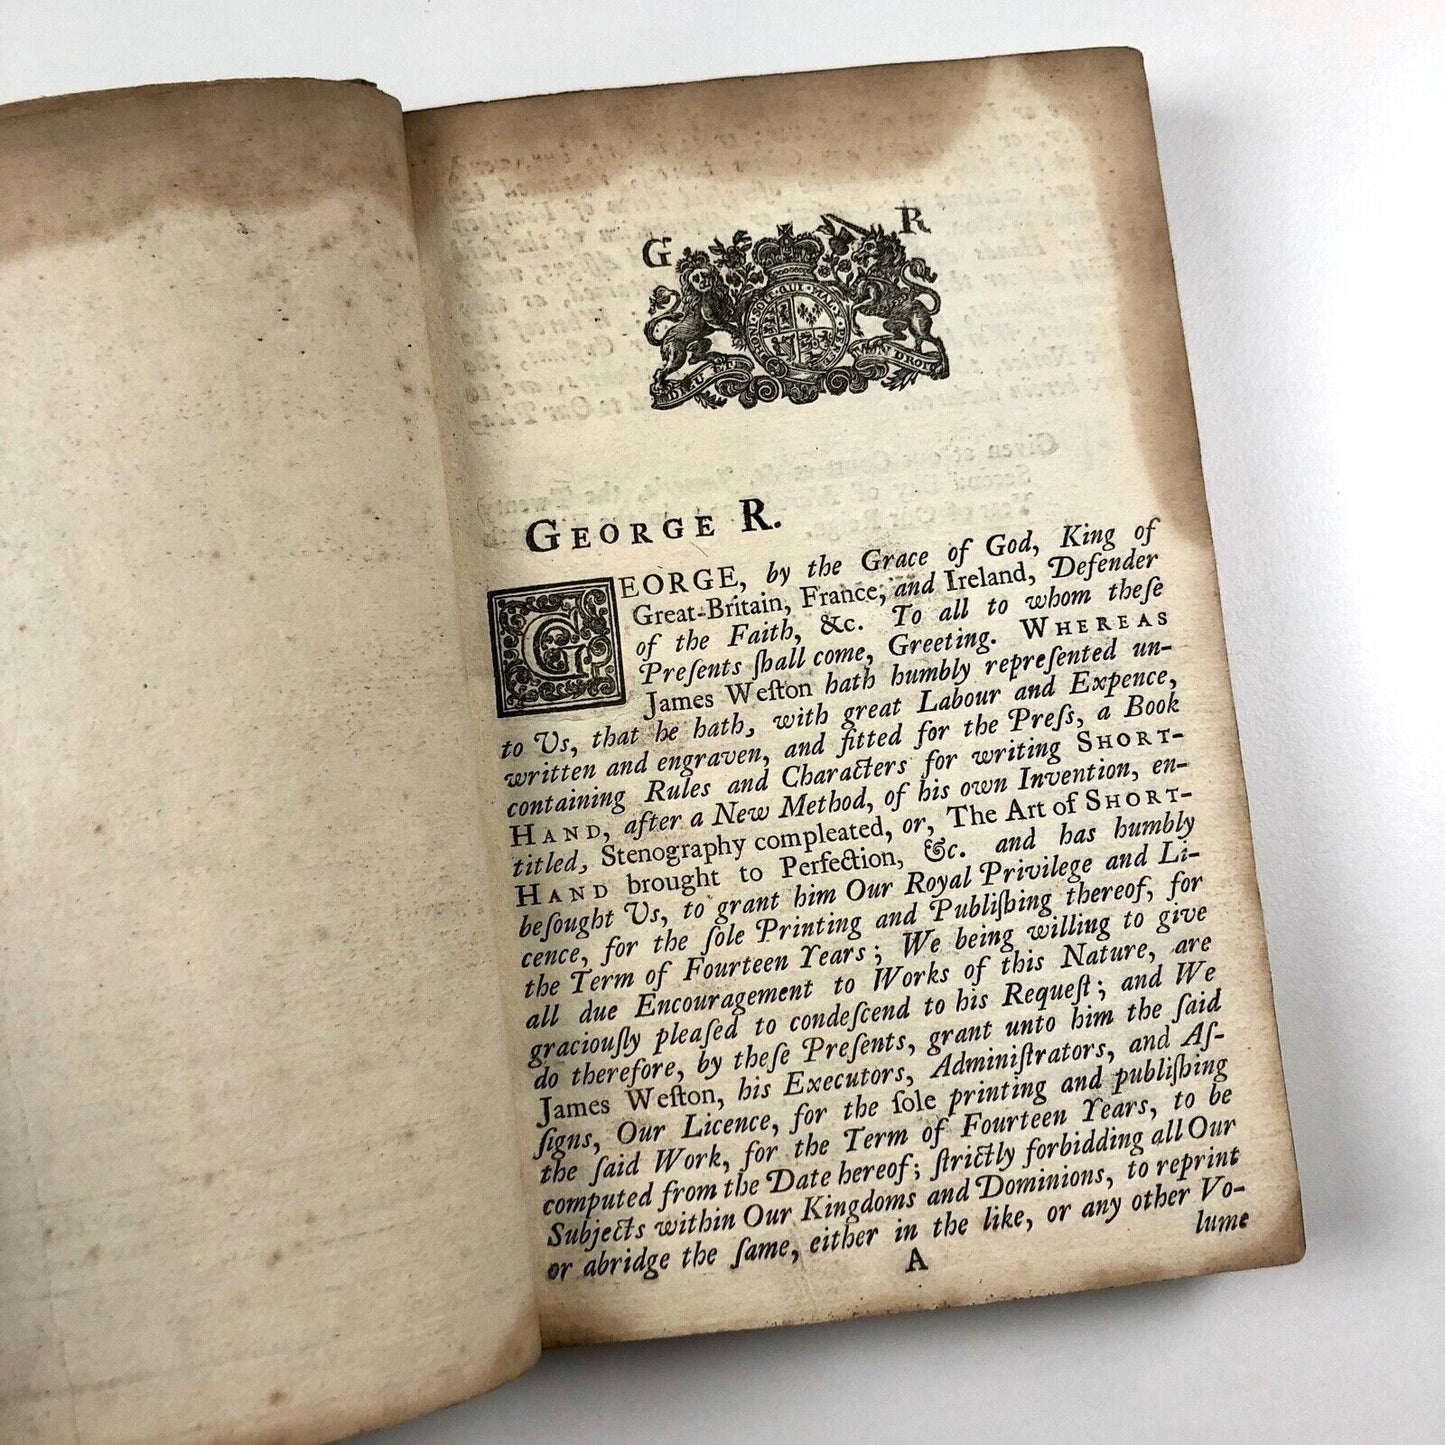 G R
HONI·SOIT·QUE·MAL·Y·PENSE
DIEU ET MON DROIT
GEORGE R.
GEORGE, by the Grace of God, King of
Great-Britain, France, and Ireland, Defender
of the Faith, &c. To all to whom theſe
Preſents ſhall come, Greeting. WHEREAS
James Weſton hath humbly repreſented un-
to Us, that he hath, with great Labour and Expence,
written and engraven, and fitted for the Preſs, a Book
containing Rules and Characters for writing SHORT-
HAND, after a New Method, of his own Invention, en-
titled, Stenography compleated, or, The Art of SHORT-
HAND brought to Perfection, &c. and has humbly
beſought Us, to grant him Our Royal Privilege and Li-
cence, for the ſole Printing and Publiſhing thereof, for
the Term of Fourteen Years; We being willing to give
all due Encouragement to Works of this Nature, are
graciouſly pleaſed to condeſcend to his Requeſt; and We
do therefore, by theſe Preſents, grant unto him the ſaid
James Weſton, his Executors, Adminiſtrators, and Aſ-
ſigns, Our Licence, for the ſole printing and publiſhing
the ſaid Work, for the Term of Fourteen Years, to be
computed from the Date hereof; ſtrictly forbidding all Our
Subjects within Our Kingdoms and Dominions, to reprint
or abridge the ſame, either in the like, or any other Vo-
A lume